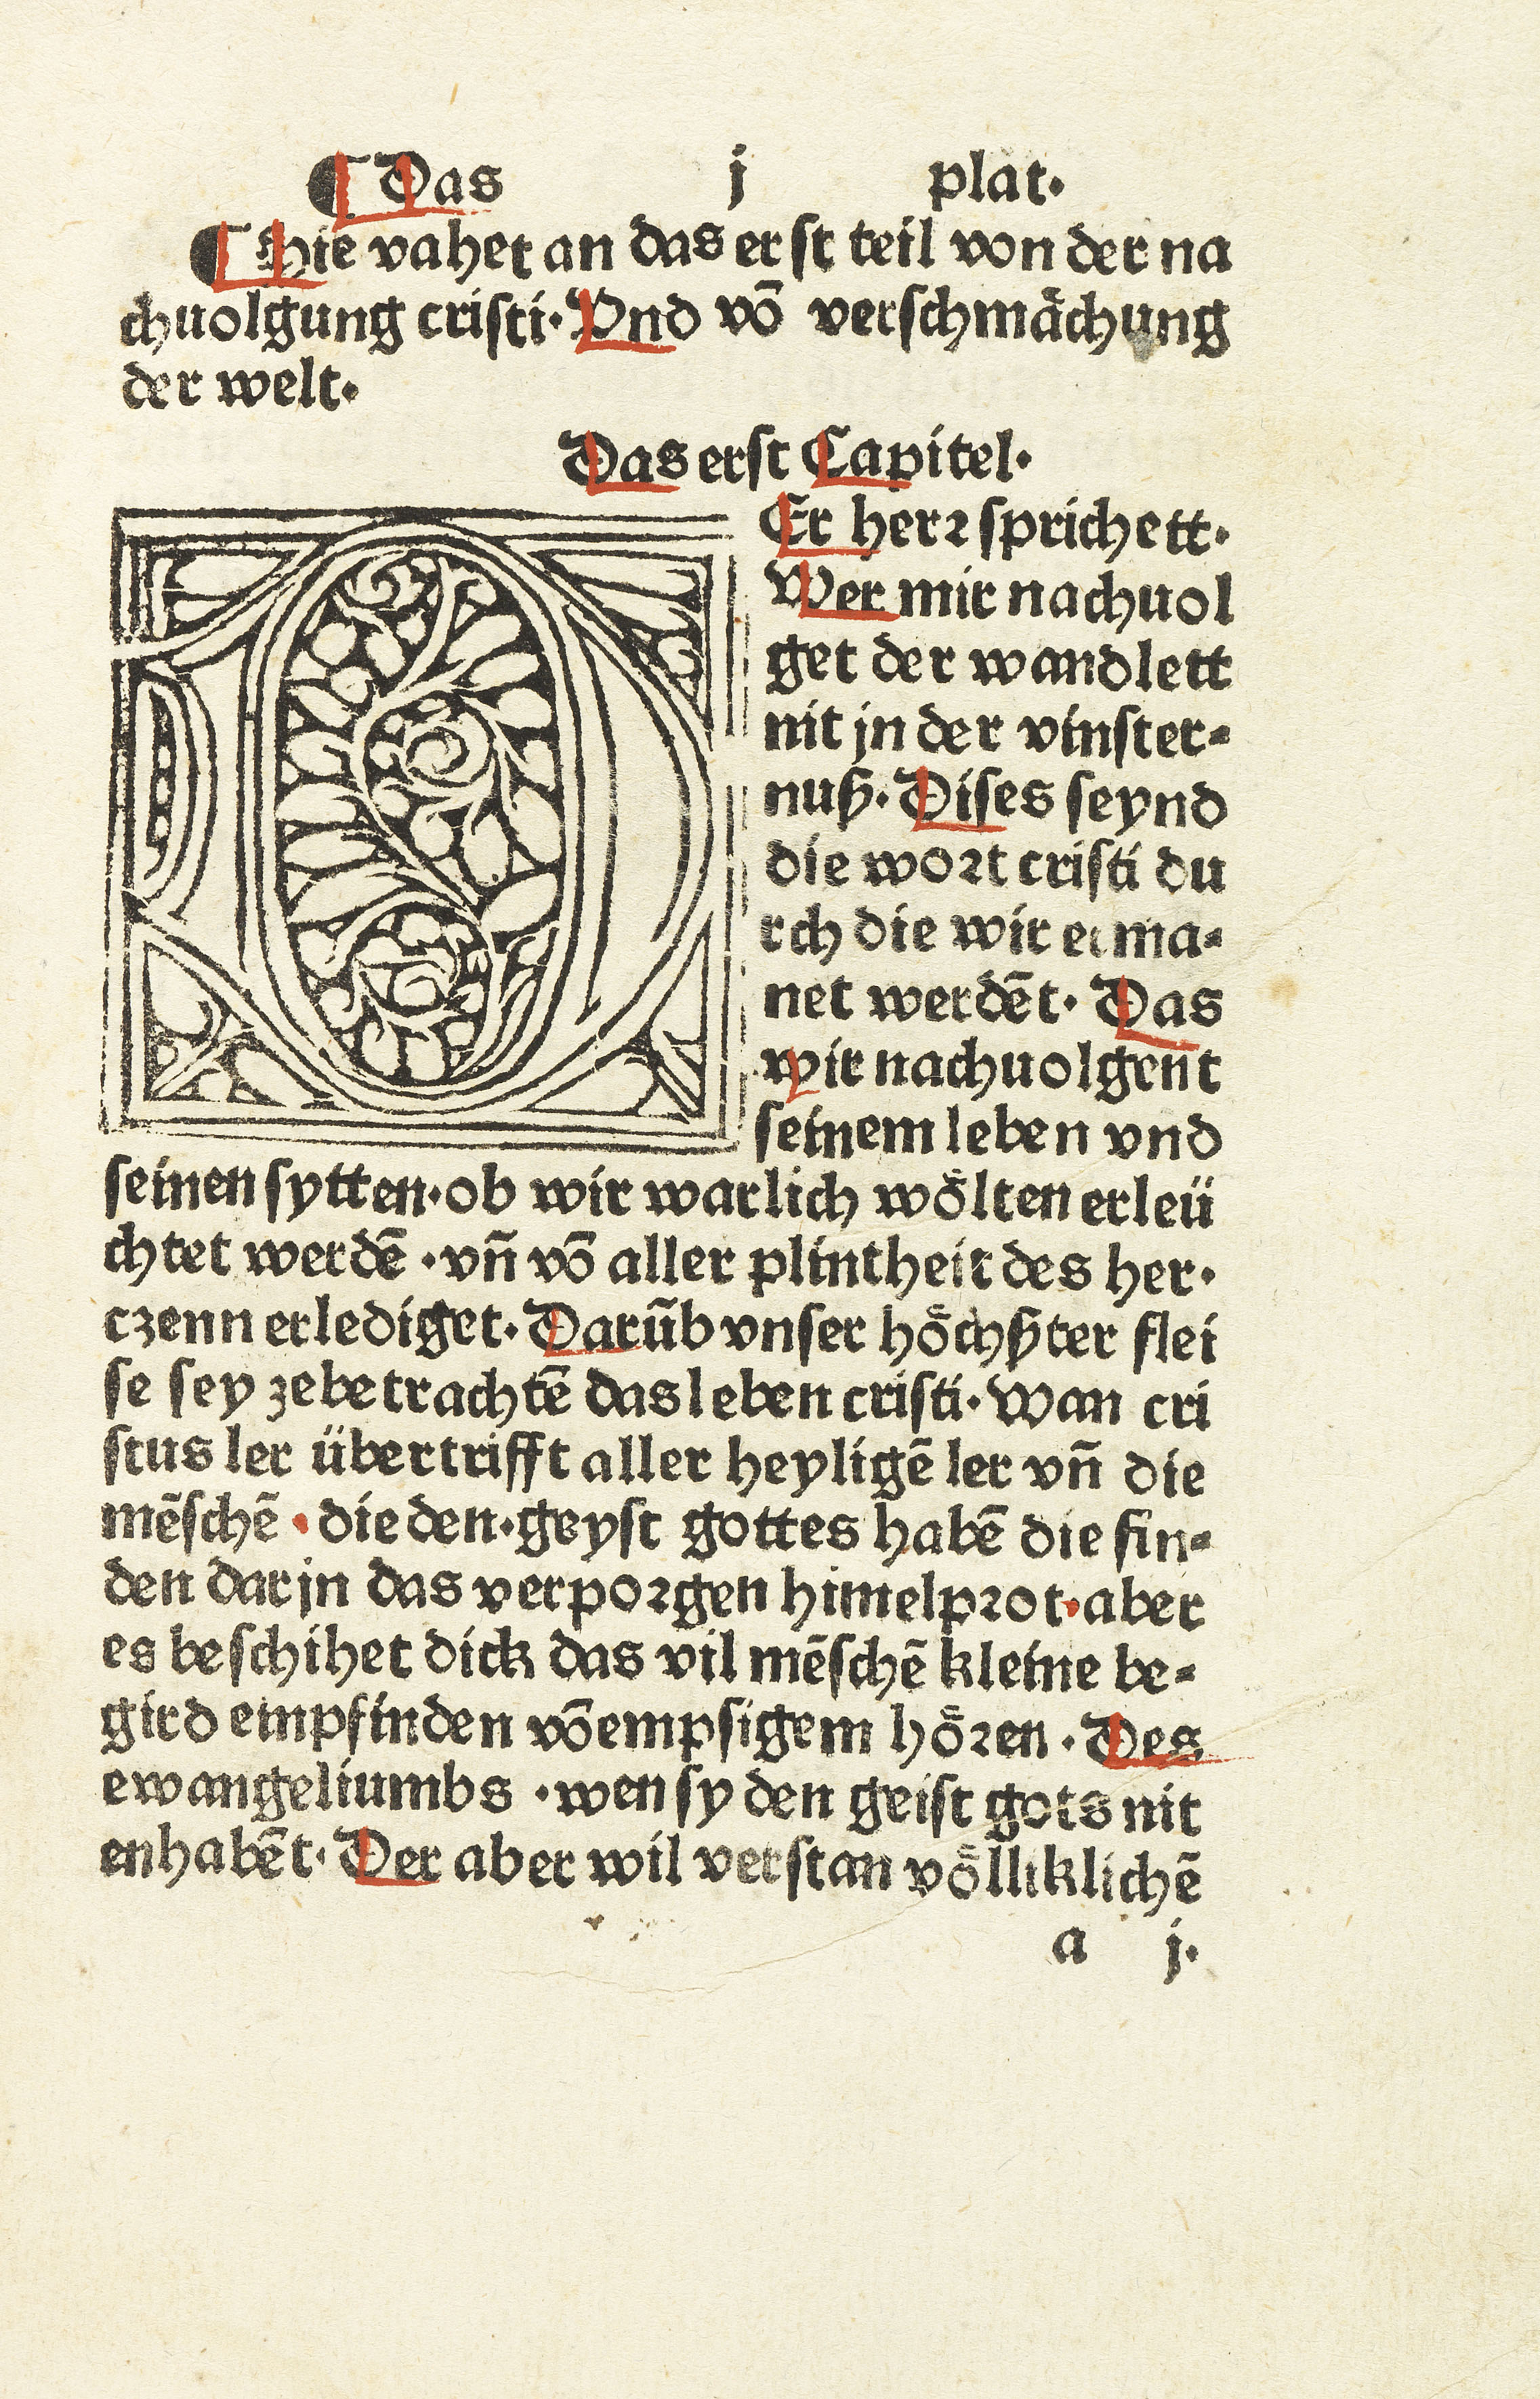 ¶ Das j plat.
¶ Hie vahet an das erst teil von der na
chuolgung cristi. Vnd võ verschmächung
der welt.
Das erst Capitel.
DEr herr sprichett.
Wer mir nachuol
get der wandlett
nit jn der vinster-
nuß. Dises seynd
die wort cristi du
rch die wir erma-
net werdēt. Das
wir nachuolgent
seinem leben vnd
seinen sytten. ob wir warlich wölten erleü
chtet werdē. vn̄ võ aller plintheit des her.
czenn erlediget. Darūb vnser höchßter flei
se sey zebetrachtē das leben cristi. Wan cri
stus ler übertrifft aller heyligē ler vn̄ die
mēschē. die den. geyst gottes habē die fin-
den darjn das verporgen himelprot. aber
es beschihet dick das vil mēschē kleine be-
gird empfinden võ empsigem hören. Des
ewangeliumbs. wen sy den geist gots nit
enhabēt. Der aber wil verstan völliklichē
a j.